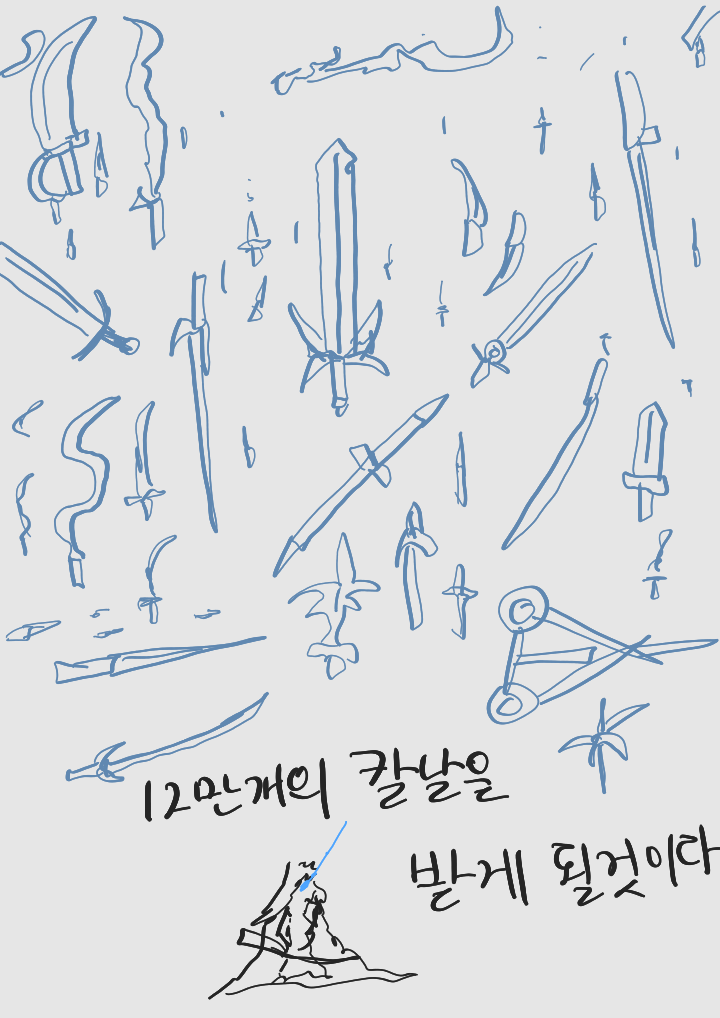 12만개의 칼날을
받게 될것이다